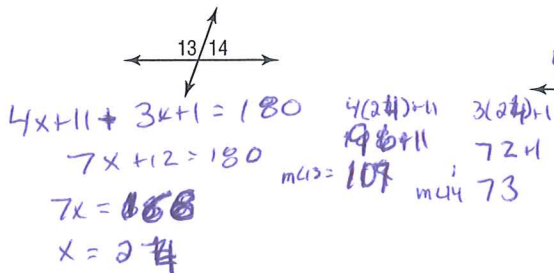 13 14
4x+11+ 3x+1 = 180
7x+12=180
7x = 168
x = 24
4(24)+11
96+11
m<13= 107
3(24)+1
72+1
m<14 73